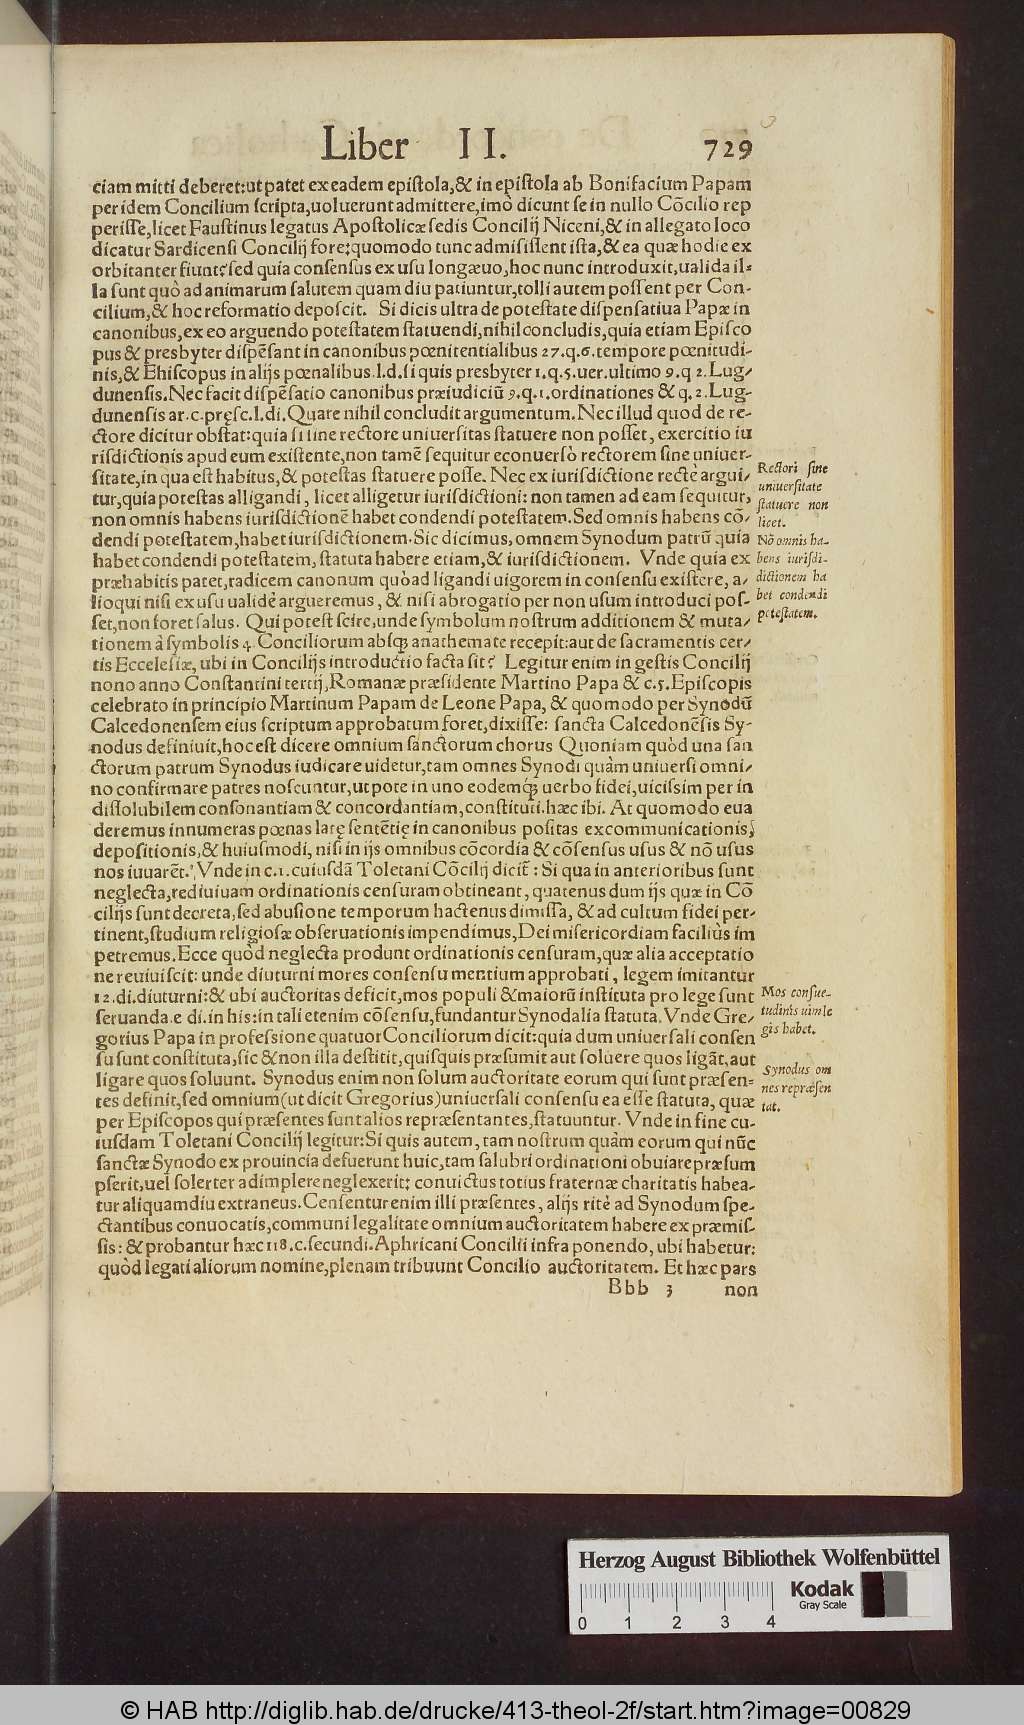 Liber II. 729
ciam mitti deberet:ut patet ex eadem epistola,& in epistola ab Bonifacium Papam
per idem Concilium scripta,uoluerunt admittere,imò dicunt se in nullo Cōcilio rep
perisse,licet Faustinus legatus Apostolicæ sedis Concilij Niceni,& in allegato loco
dicatur Sardicensi Concilij fore:quomodo tunc admisissent ista,& ea quæ hodie ex
orbitanter fiunt?sed quia consensus ex usu longæuo,hoc nunc introduxit,ualida il-
la sunt quò ad animarum salutem quam diu patiuntur,tolli autem possent per Con-
cilium,& hoc reformatio deposcit. Si dicis ultra de potestate dispensatiua Papæ in
canonibus,ex eo arguendo potestatem statuendi,nihil concludis,quia etiam Episco
pus & presbyter dispēsant in canonibus pœnitentialibus 27.q.6.tempore pœnitudi-
nis,& Ehiscopus in alijs pœnalibus.l.d.si quis presbyter 1.q.5.uer.ultimo 9.q 2.Lug-
dunensis.Nec facit dispēsatio canonibus præiudiciū 9.q.1.ordinationes & q.2.Lug-
dunensis ar.c.pręsc.l.di.Quare nihil concludit argumentum.Nec illud quod de re-
ctore dicitur obstat:quia si sine rectore uniuersitas statuere non posset, exercitio iu
risdictionis apud eum existente,non tamē sequitur econuersò rectorem sine uniuer-
sitate,in qua est habitus,& potestas statuere posse. Nec ex iurisdictione rectè argui-
tur,quia potestas alligandi, licet alligetur iurisdictioni: non tamen ad eam sequitur,
non omnis habens iurisdictionē habet condendi potestatem.Sed omnis habens cō-
dendi potestatem,habet iurisdictionem.Sic dicimus,omnem Synodum patrū quia
habet condendi potestatem,statuta habere etiam,& iurisdictionem. Vnde quia ex
præhabitis patet,radicem canonum quòad ligandi uigorem in consensu existere, a-
lioqui nisi ex usu ualidè argueremus, & nisi abrogatio per non usum introduci pos-
set,non foret salus. Qui potest scire,unde symbolum nostrum additionem & muta-
tionem à symbolis 4.Conciliorum absq; anathemate recepit:aut de sacramentis cer-
tis Eccelesiæ, ubi in Concilijs introductio facta sit? Legitur enim in gestis Concilij
nono anno Constantini tertij,Romanæ præsidente Martino Papa & c.5.Episcopis
celebrato in principio Martinum Papam de Leone Papa, & quomodo per Synodū
Calcedonensem eius scriptum approbatum foret,dixisse: sancta Calcedonēsis Sy-
nodus definiuit,hoc est dicere omnium sanctorum chorus Quoniam quòd una san
ctorum patrum Synodus iudicare uidetur,tam omnes Synodi quàm uniuersi omni-
no confirmare patres noscuntur,ut pote in uno eodemq́; uerbo fidei,uicissim per in
dissolubilem consonantiam & concordantiam,constituti.hæc ibi. At quomodo eua
deremus innumeras pœnas latę sentētię in canonibus positas excommunicationis,
depositionis,& huiusmodi, nisi in ijs omnibus cōcordia & cōsensus usus & nō usus
nos iuuarēt? Vnde in c.1.cuiusdā Toletani Cōcilij dicit̄ : Si qua in anterioribus sunt
neglecta,rediuiuam ordinationis censuram obtineant, quatenus dum ijs quæ in Cō
cilijs sunt decreta,sed abusione temporum hactenus dimissa, & ad cultum fidei per-
tinent,studium religiosæ obseruationis impendimus,Dei misericordiam faciliùs im
petremus.Ecce quòd neglecta produnt ordinationis censuram,quæ alia acceptatio
ne reuiuiscit: unde diuturni mores consensu mentium approbati, legem imitantur
12.di.diuturni:& ubi auctoritas deficit,mos populi &maiorū instituta pro lege sunt
seruanda.e di.in his:in tali etenim cōsensu,fundantur Synodalia statuta.Vnde Gre-
gorius Papa in professione quatuor Conciliorum dicit:quia dum uniuersali consen
su sunt constituta,sic & non illa destitit,quisquis præsumit aut soluere quos ligāt,aut
ligare quos soluunt. Synodus enim non solum auctoritate eorum qui sunt præsen-
tes definit,sed omnium(ut dicit Gregorius)uniuersali consensu ea esse statuta, quæ
per Episcopos qui præsentes sunt alios repræsentantes,statuuntur. Vnde in fine cu-
iusdam Toletani Concilij legitur:Si quis autem, tam nostrum quàm eorum qui nūc
sanctæ Synodo ex prouincia defuerunt huic,tam salubri ordinationi obuiare præsum
pserit,uel solerter adimplere neglexerit: conuictus totius fraternæ charitatis habea-
tur aliquamdiu extraneus.Censentur enim illi præsentes, alijs ritè ad Synodum spe-
ctantibus conuocatis,communi legalitate omnium auctoritatem habere ex præmis-
sis: & probantur hæc 118.c.secundi.Aphricani Concilii infra ponendo, ubi habetur:
quòd legati aliorum nomine,plenam tribuunt Concilio auctoritatem. Et hæc pars
Bbb 3 non
Rectori sine
uniuersitate
statuere non
licet.
Nō omnis ha-
bens iurisdi-
dictionem ha
bet condendi
potestatem.
Mos consue-
tudinis uim le
gis habet.
Synodus om
nes repræsen
tat.
Herzog August Bibliothek Wolfenbüttel
0 1 2 3 4
Kodak
Gray Scale
© HAB http://diglib.hab.de/drucke/413-theol-2f/start.htm?image=00829